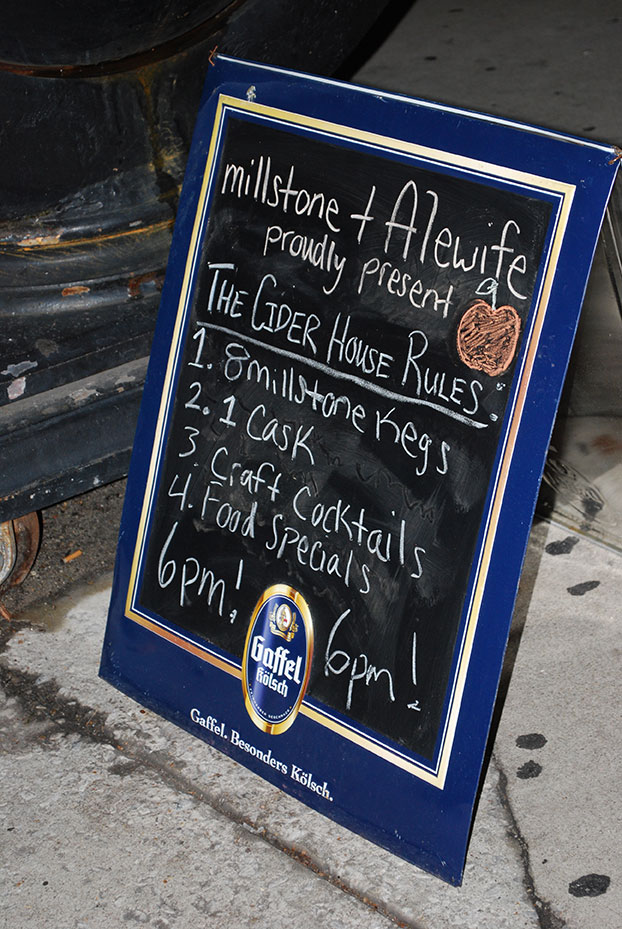 millstone + Alewife
proudly present
THE CIDER HOUSE RULES:
1. 8 millstone kegs
2. 1 cask
3. Craft Cocktails
4. Food Specials
6pm! 6pm!
Gaffel
Kölsch
Gaffel. Besonders Kölsch.